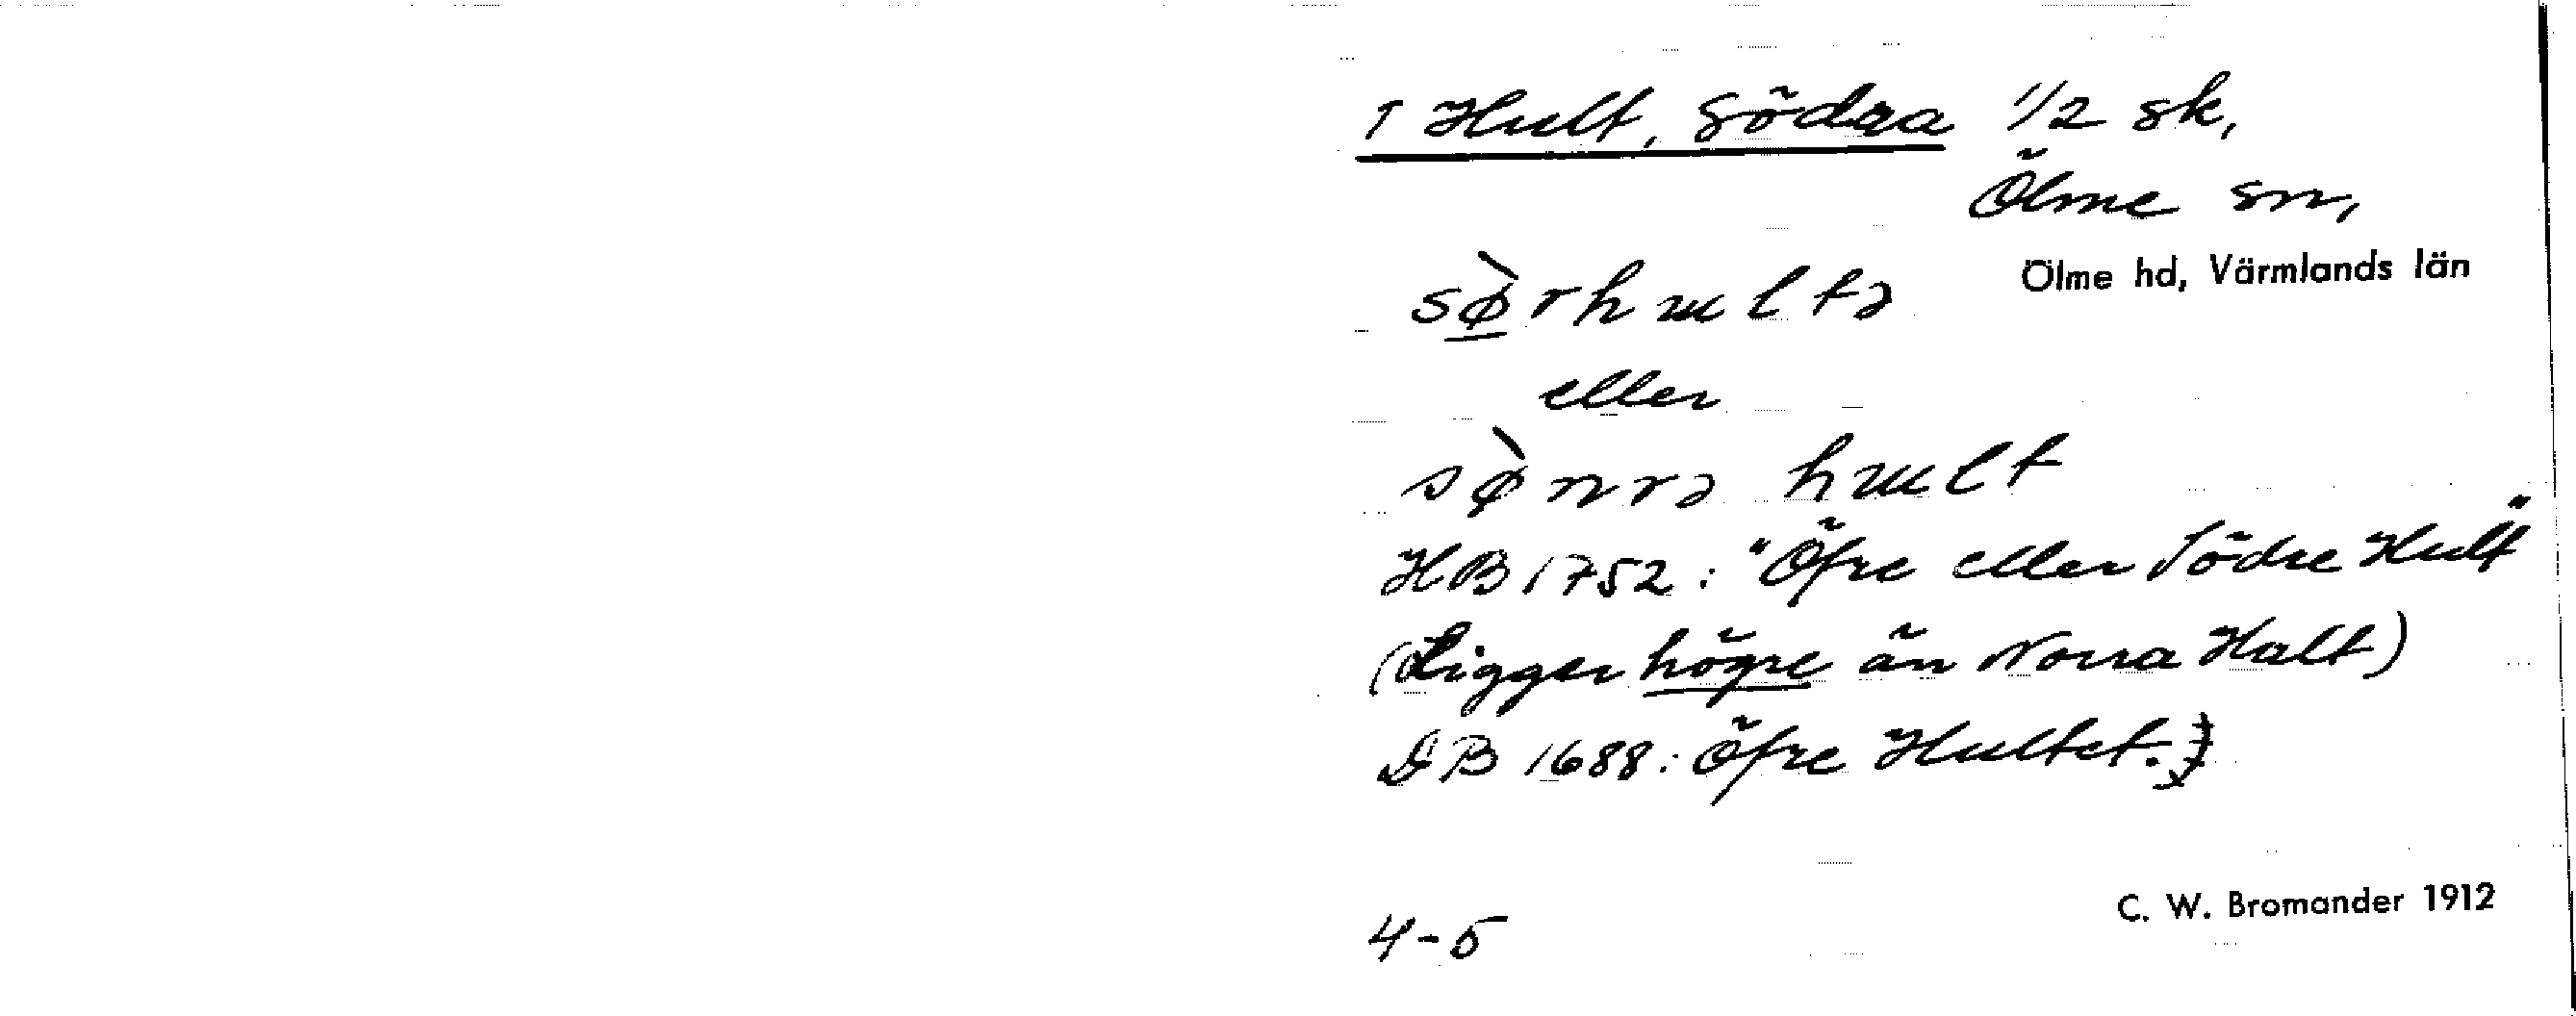 1 Hult, Södra 1/2 sk,
Ölme sn,
Ölme hd, Värmlands län
sø̀rhultə
eller
sø̀nrə hult
HB 1752: "Öfre eller Södre Hult"
(Ligger högre än Norra Halt)
DB 1688: Öfre Hultet.
C. W. Bromander 1912
4-5